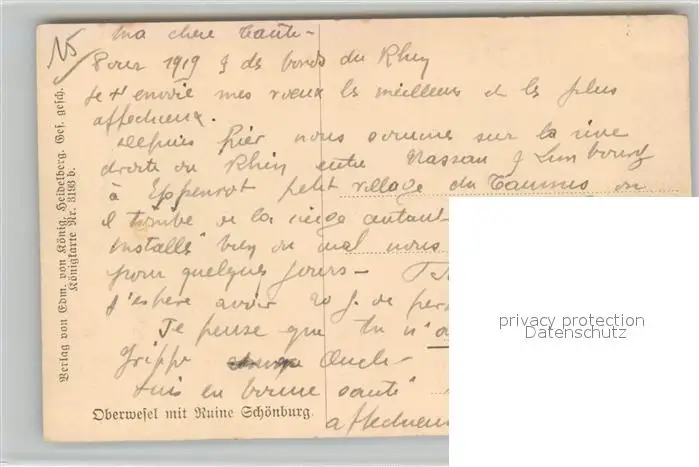 15
Ma chere Tante -
Pour 1919 & des bords du Rhin
je t'envoie mes voeux les meilleurs et les plus
affectueux.
Depuis hier nous sommes sur la rive
droite du Rhin entre Nassau & Limbourg
à Eppenrot petit village du Taunus où
il tombe de la neige autant
installés bien ou mal nous
pour quelques jours -
j'espère avoir 20 j. de per
Je pense que tu n'a
Grippe Oncle -
suis en bonne santé
affectueu
Oberwesel mit Ruine Schönburg.
Verlag von Edm. von König, Heidelberg. Ges. gesch.
Königkarte Nr. 3193 b.
privacy protection
Datenschutz